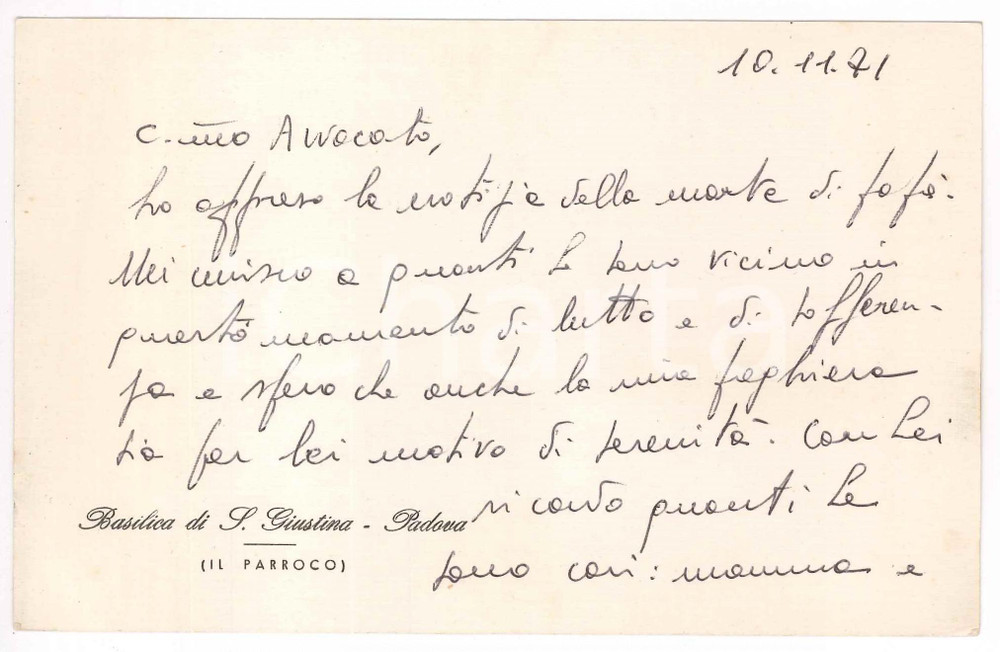 10.11.71
C.mo Avvocato,
ho appreso la notizia della morte di papà.
Mi unisco a quanti Le sono vicino in
questo momento di lutto e di sofferen-
za e spero che anche la mia preghiera
sia per lei motivo di serenità. Con Lei
ricordo quanti Le
Basilica di S. Giustina - Padova
(IL PARROCO)
sono cari: mamma e